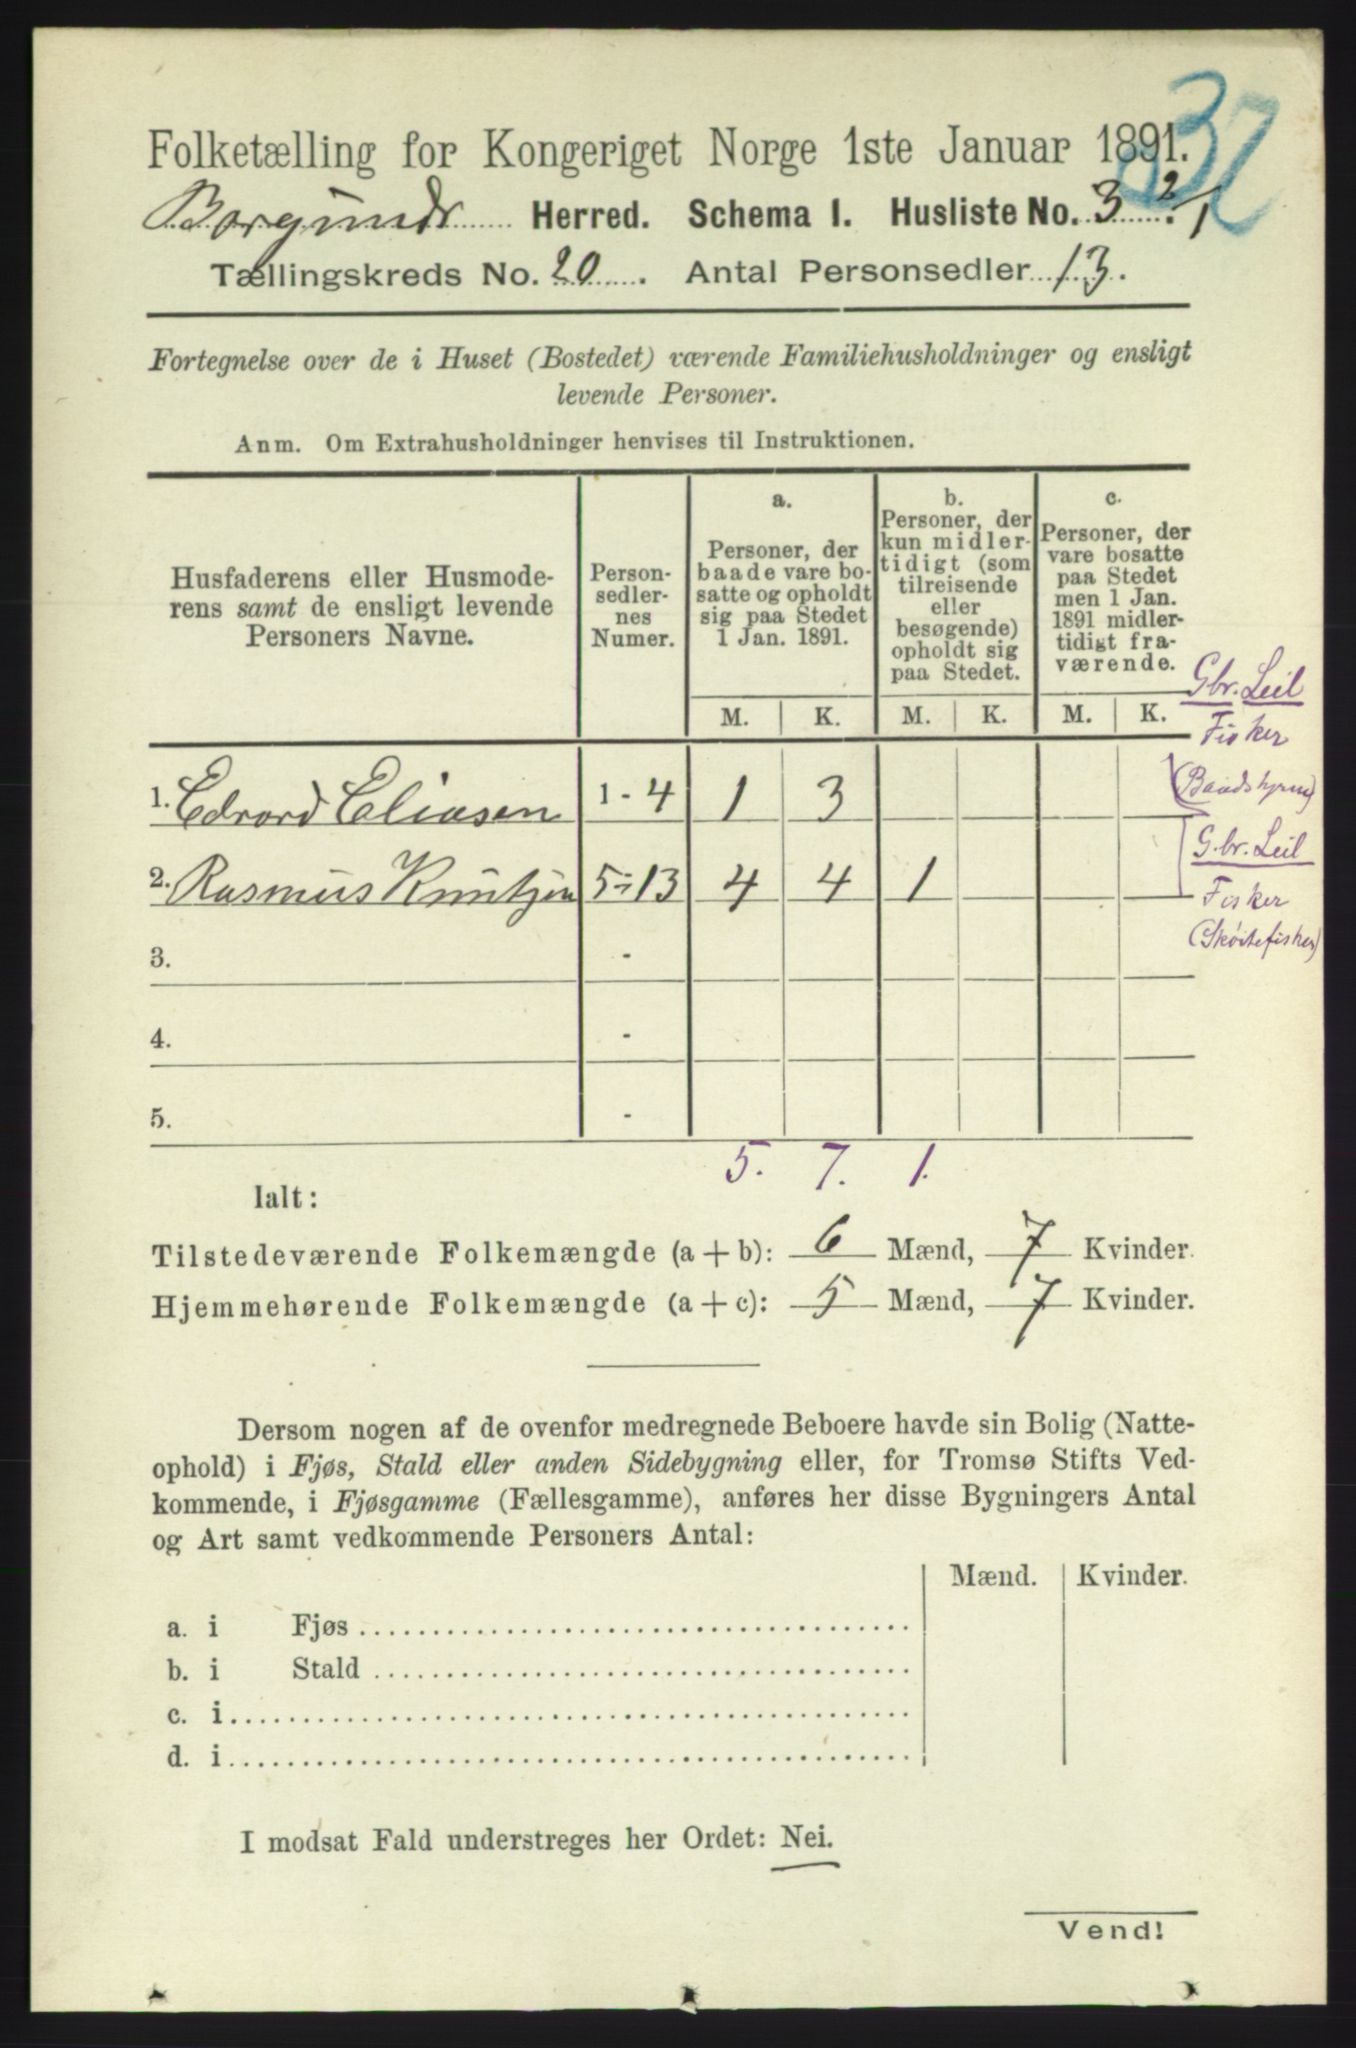 32
Folketælling for Kongeriget Norge 1ste Januar 1891.
Borgund Herred. Schema 1. Husliste No. 3
Tællingskreds No. 20. Antal Personsedler 13.
Fortegnelse over de i Huset (Bostedet) værende Familiehusholdninger og ensligt
levende Personer.
Anm. Om Extrahusholdninger henvises til Instruktionen.
Husfaderens eller Husmode-
rens samt de ensligt levende
Personers Navne.
Person-
sedler-
nes
Numer.
a.
Personer, der
baade vare bo-
satte og opholdt
sig paa Stedet
1 Jan. 1891.
b.
Personer, der
kun midler-
tidigt (som
tilreisende
eller
besøgende)
opholdt sig
paa Stedet.
c.
Personer, der
vare bosatte
paa Stedet
men 1 Jan.
1891 midler-
tidigt fra-
værende.
M. K. M. K. M. K.
Gbr. Leil
Fisker
1. Edvard Eliasen 1 - 4 1 3
Gbr. Leil
2. Rasmus Knutsen 5 - 13 4 4 1
Fisker
(Skøitefisker)
3. -
4. -
5. -
5. 7. 1.
Ialt:
Tilstedeværende Folkemængde (a + b): 6 Mænd, 7 Kvinder.
Hjemmehørende Folkemængde (a + c): 5 Mænd, 7 Kvinder.
Dersom nogen af de ovenfor medregnede Beboere havde sin Bolig (Natte-
ophold) i Fjøs, Stald eller anden Sidebygning eller, for Tromsø Stifts Ved-
kommende, i Fjøsgamme (Fællesgamme), anføres her disse Bygningers Antal
og Art samt vedkommende Personers Antal:
Mænd. Kvinder.
a. i Fjøs
b. i Stald
c. i
d. i
I modsat Fald understreges her Ordet: Nei.
Vend!